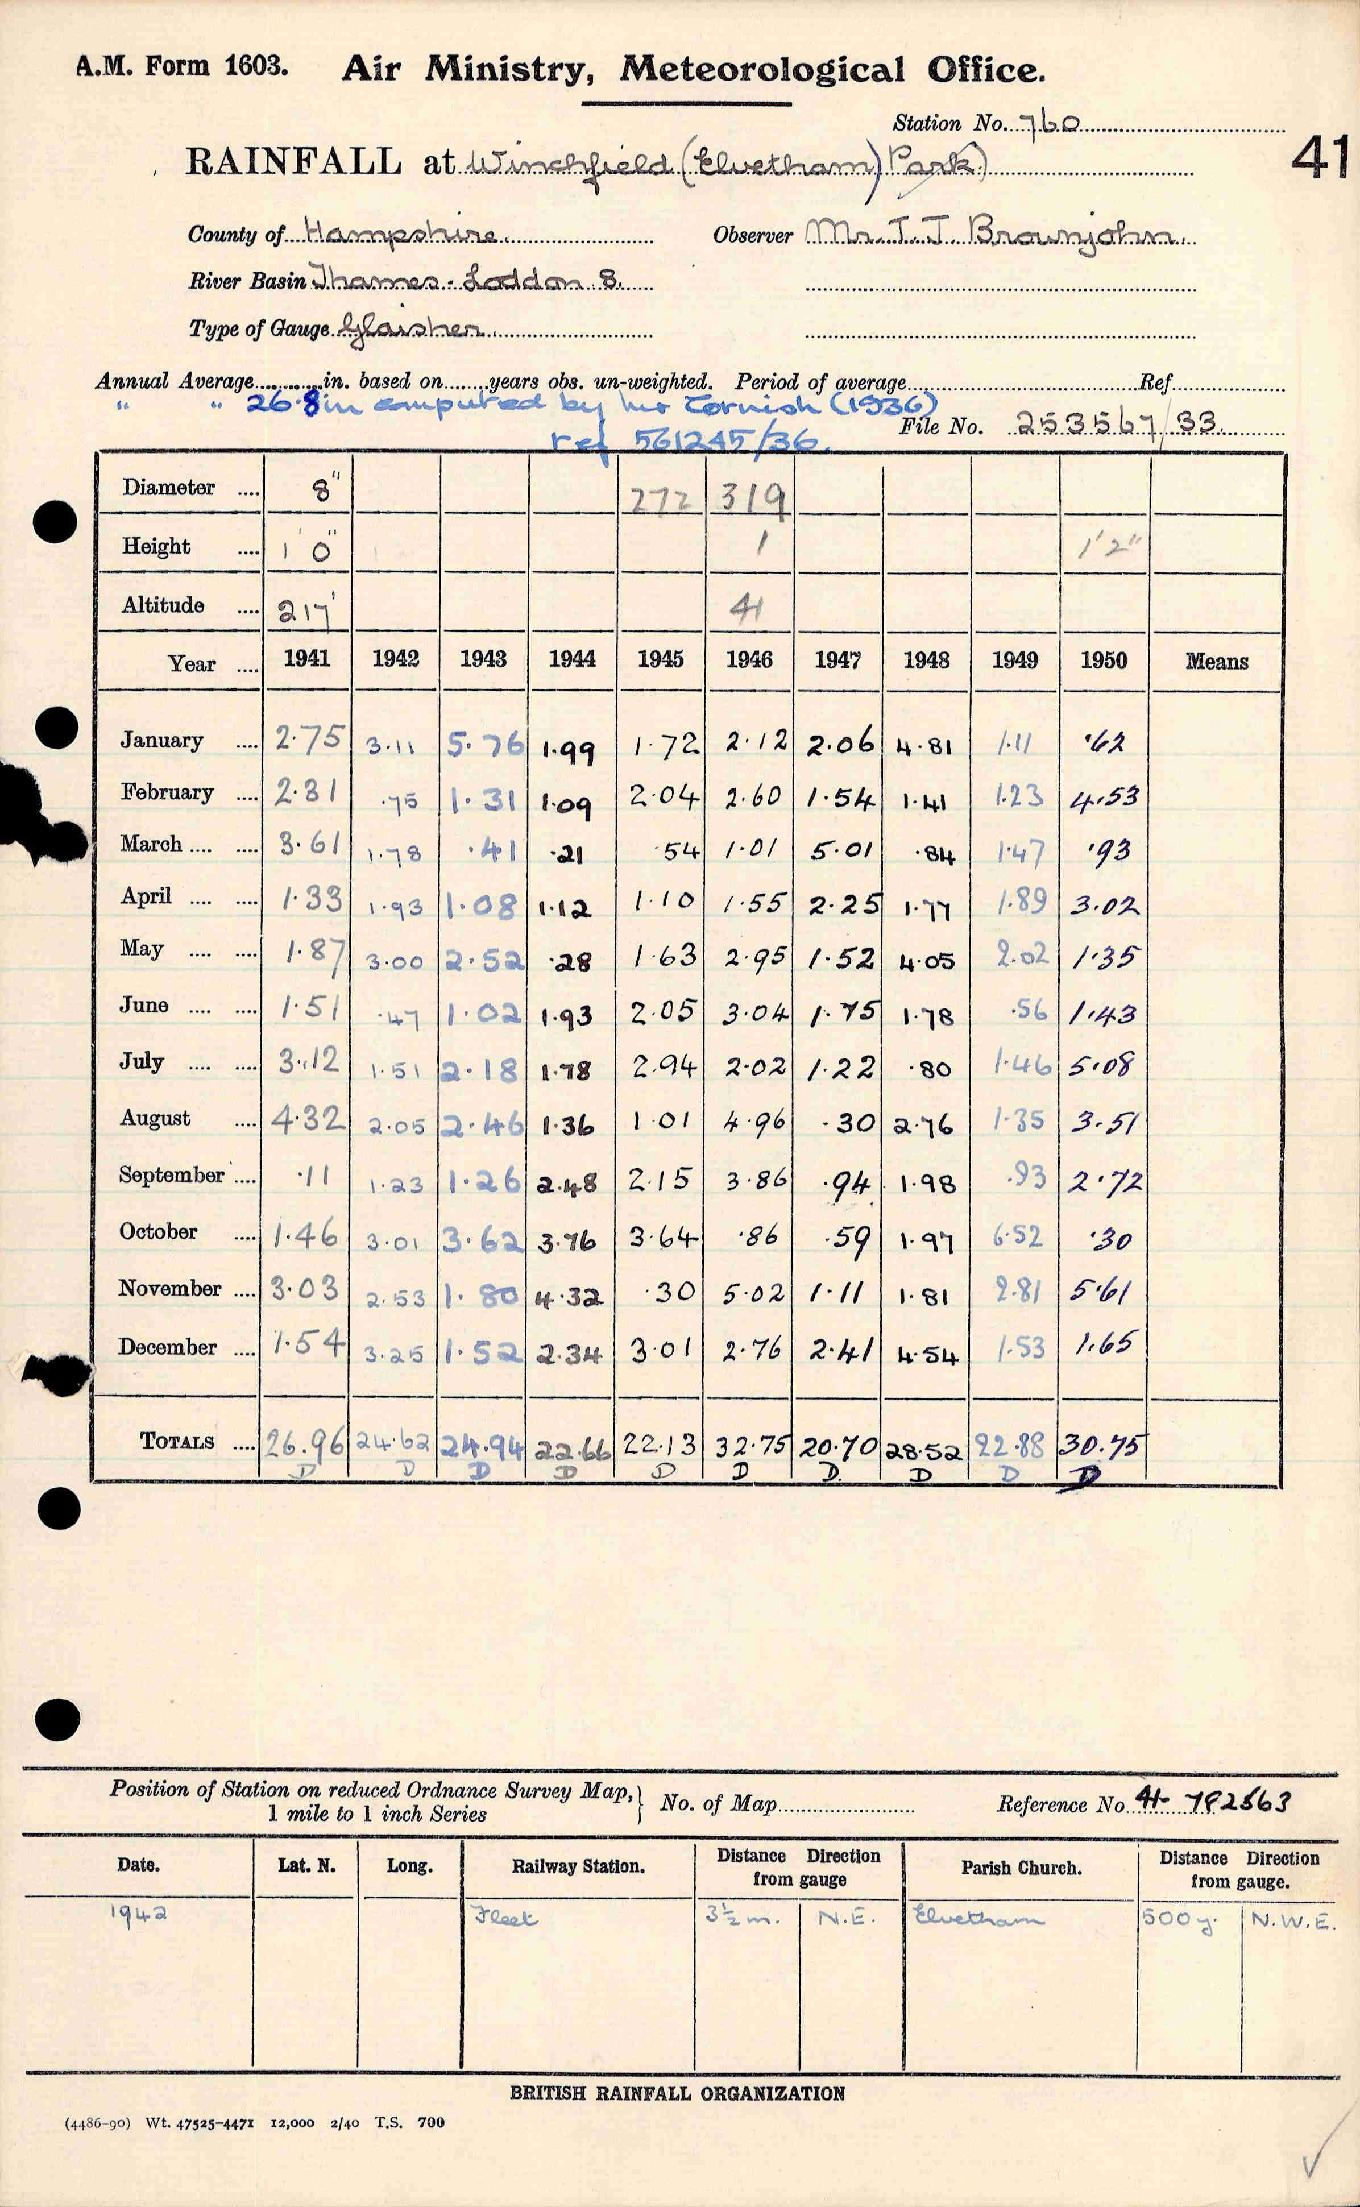 A.M. Form 1603. Air Ministry, Meteorological Office.
Station No. 760
41
RAINFALL at Winchfield (Elvetham) Park)
County of Hampshire. Observer Mr. T. J. Brownjohn.
River Basin Thames - Loddon 8.
Type of Gauge Glaisher
Annual Average............in. based on........years obs. un-weighted. Period of average Ref
" " 26.8 in computed by Mr Cornish (1936)
File No. 253567/33
ref 561245/36.
Diameter .... 8" 272 319
Height .... 1' 0" 1 1'2"
Altitude .... 217' 41
Year .... 1941 1942 1943 1944 1945 1946 1947 1948 1949 1950 Means
January .... 2.75 3.11 5.76 1.99 1.72 2.12 2.06 4.81 1.11 .62
February .... 2.31 .75 1.31 1.09 2.04 2.60 1.54 1.41 1.23 4.53
March .... .... 3.61 1.78 .41 .21 .54 1.01 5.01 .84 1.47 .93
April .... .... 1.33 1.93 1.08 1.12 1.10 1.55 2.25 1.77 1.89 3.02
May .... .... 1.87 3.00 2.52 .28 1.63 2.95 1.52 4.05 2.02 1.35
June .... .... 1.51 .47 1.02 1.93 2.05 3.04 1.75 1.78 .56 1.43
July .... .... 3.12 1.51 2.18 1.78 2.94 2.02 1.22 .80 1.46 5.08
August .... 4.32 2.05 2.46 1.36 1.01 4.96 .30 2.76 1.35 3.51
September .... .11 1.23 1.26 2.48 2.15 3.86 .94 1.98 .93 2.72
October .... 1.46 3.01 3.62 3.76 3.64 .86 .59 1.97 6.52 .30
November .... 3.03 2.53 1.80 4.32 .30 5.02 1.11 1.81 2.81 5.61
December .... 1.54 3.25 1.52 2.34 3.01 2.76 2.41 4.54 1.53 1.65
TOTALS .... 26.96 24.62 24.94 22.66 22.13 32.75 20.70 28.52 22.88 30.75
D D D D D D D D D D
Position of Station on reduced Ordnance Survey Map, } No. of Map Reference No. 41 782563
1 mile to 1 inch Series
Date. Lat. N. Long. Railway Station. Distance Direction from gauge Parish Church. Distance Direction from gauge.
1942 Fleet 3½ m. N.E. Elvetham 500 y. N.W.E.
BRITISH RAINFALL ORGANIZATION
(4486-90) Wt. 47525-4471 12,000 2/40 T.S. 700